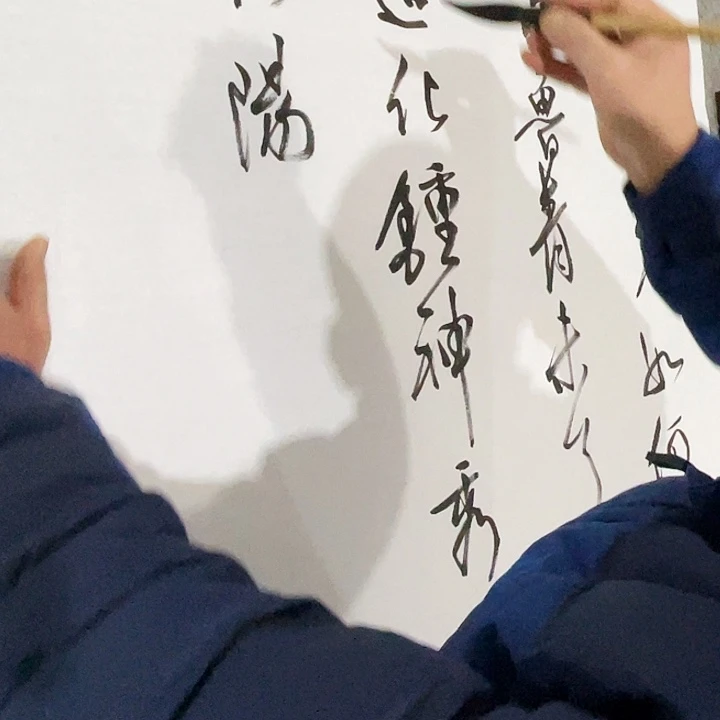 如何
魯青未了
造化鍾神秀
陽